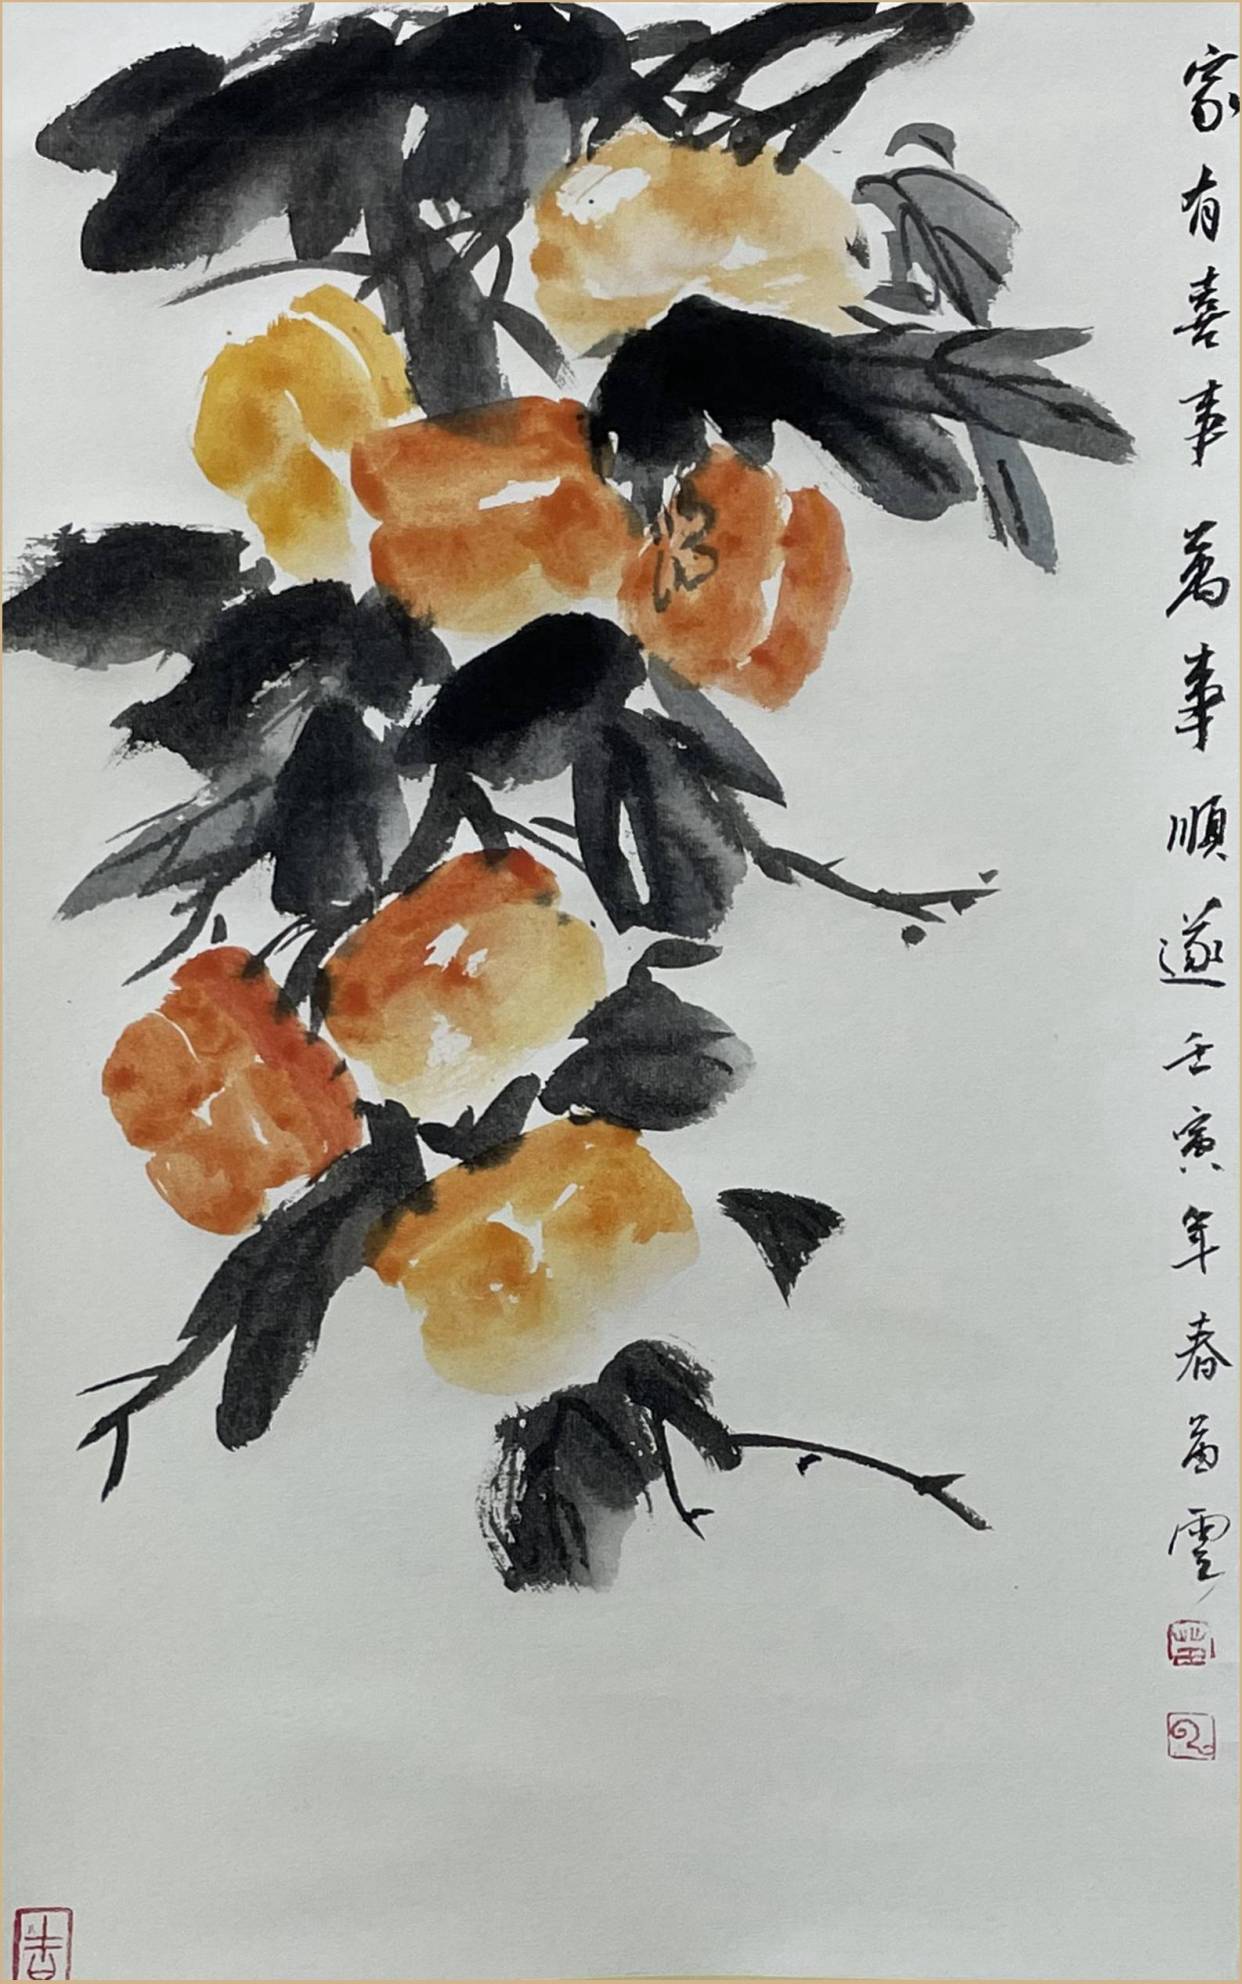 家有喜事萬事順遂壬寅年春苗雲
苗
云